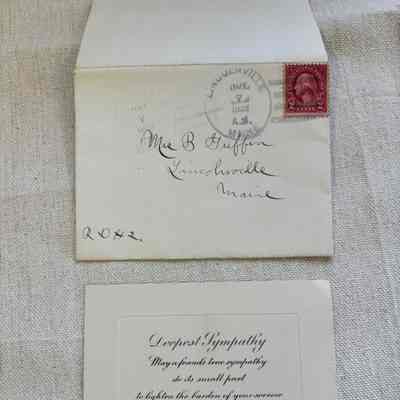 LINCOLNVILLE
MAINE
Mrs B Griffin
Lincolnville
Maine
R.D #2.
Deepest Sympathy
May a friends true sympathy
do its small part
to lighten the burden of your sorrow